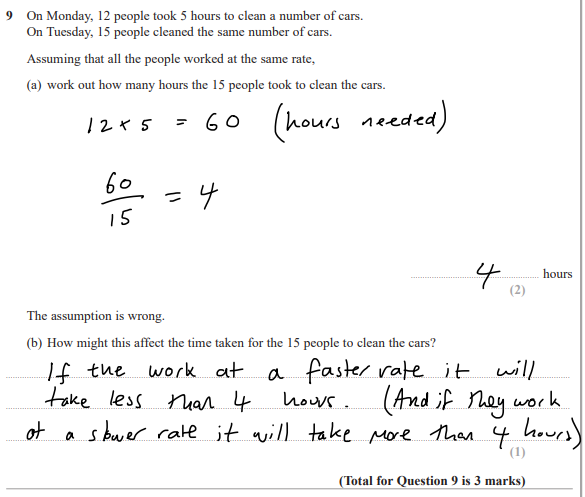 9 On Monday, 12 people took 5 hours to clean a number of cars.
On Tuesday, 15 people cleaned the same number of cars.
Assuming that all the people worked at the same rate,
(a) work out how many hours the 15 people took to clean the cars.
12 × 5 = 60 (hours needed)
60/15 = 4
4 hours
(2)
The assumption is wrong.
(b) How might this affect the time taken for the 15 people to clean the cars?
If the work at a faster rate it will
take less than 4 hours. (And if they work
at a slower rate it will take more than 4 hours)
(1)
(Total for Question 9 is 3 marks)